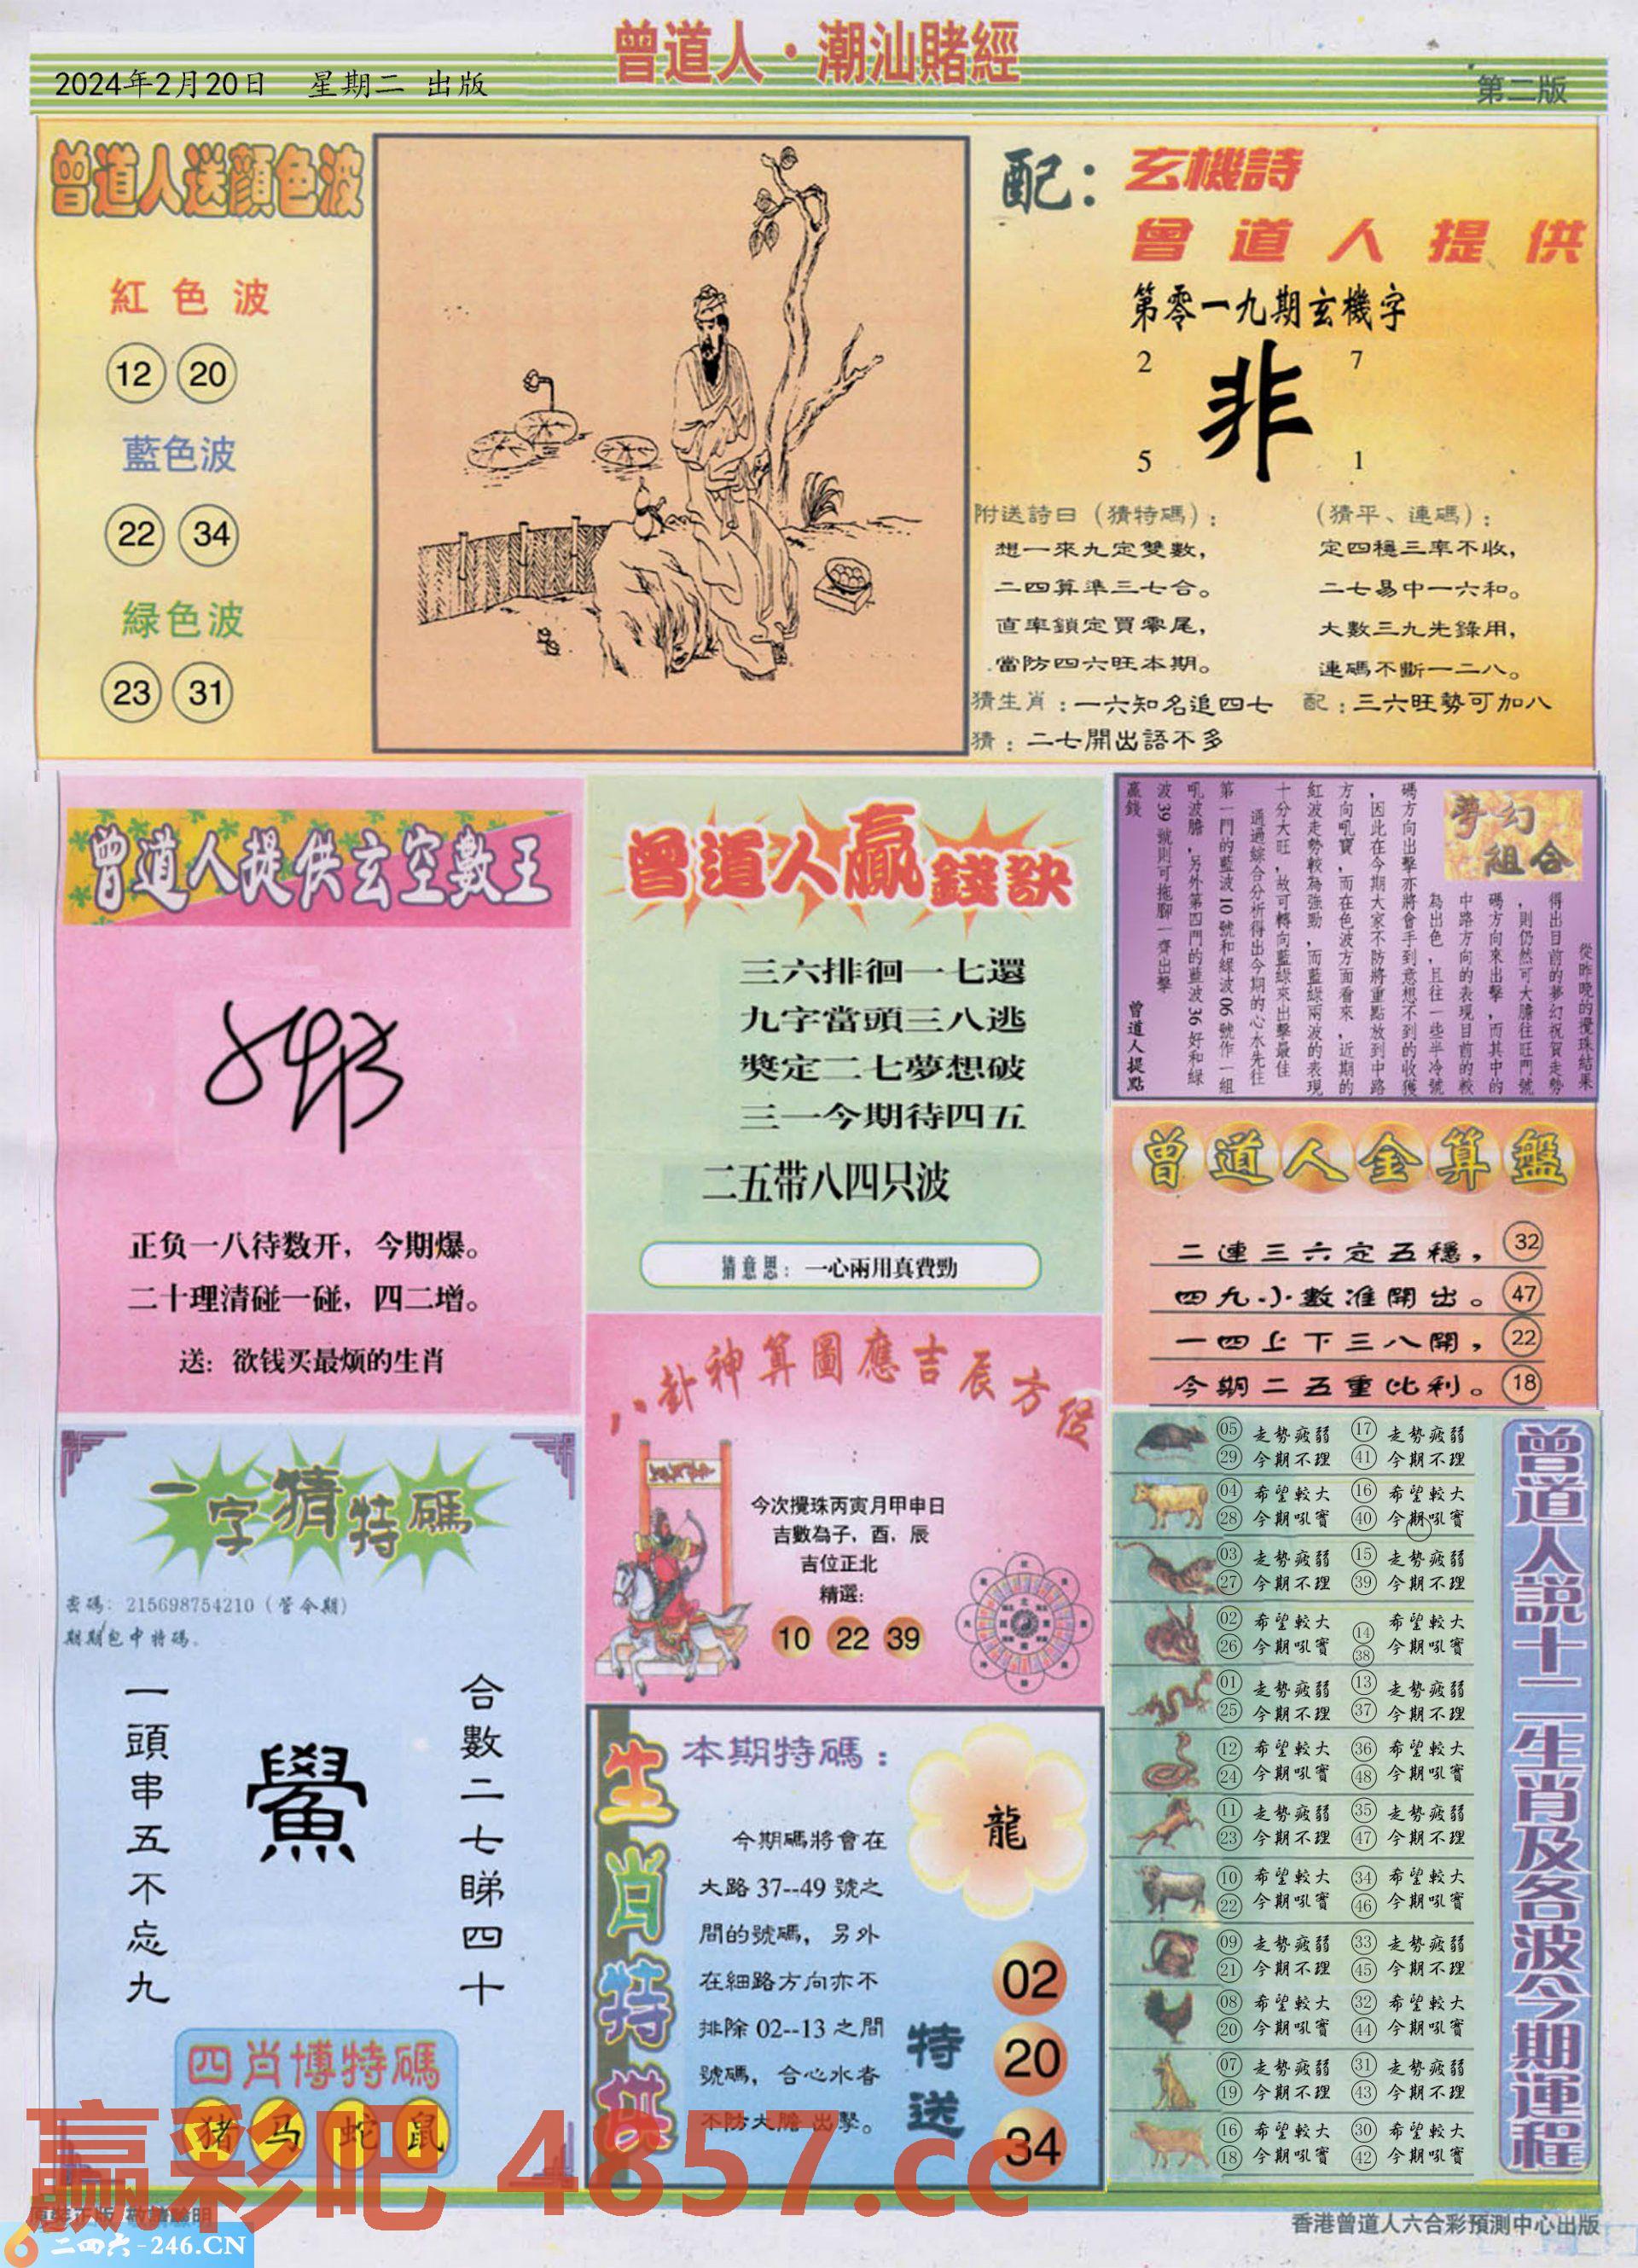 曾道人·潮汕賭經
2024年2月20日 星期二 出版
第二版
曾道人送顔色波
紅色波
12 20
藍色波
22 34
緑色波
23 31
配：玄機詩
曾道人提供
第零一九期玄機字
2 7
非
5 1
附送詩曰（猜特碼）：
想一來九定雙數，
二四算準三七合。
直率鎖定買零尾，
當防四六旺本期。
（猜平、連碼）：
定四穩三率不收，
二七易中一六和。
大數三九先錄用，
連碼不斷一二八。
猜生肖：一六知名追四七
配：三六旺勢可加八
猜：二七開出語不多
曾道人提供玄空數王
正负一八待数开，今期爆。
二十理清碰一碰，四二增。
送：欲钱买最烦的生肖
曾道人贏錢訣
三六排徊一七還
九字當頭三八逃
獎定二七夢想破
三一今期待四五
二五带八四只波
猜意思：一心兩用真費勁
夢幻
組合
從昨晚的攪珠結果
得出目前的夢幻祝賀走勢
，則仍然可大膽往旺門號
碼方向來出擊，而其中的
中路方向的表現目前的較
為出色，且往一些半冷號
碼方向出擊亦將會手到意想不到的收獲
，因此在今期大家不防將重點放到中路
方向吼寶，而在色波方面看來，近期的
紅波走勢較為強勁，而藍綠兩波的表現
十分大旺，故可轉向藍綠來出擊最佳
通過綜合分析得出今期的心水先往
第一門的藍波10號和綠波06號作一組
吼波膽，另外第四門的藍波36好和綠
波39號則可拖腳一齊出擊
贏錢 曾道人提點
曾道人金算盤
二連三六定五穩， 32
四九小數准開出。 47
一四上下三八開， 22
今期二五重比利。 18
八卦神算圖應吉辰方位
今次攪珠丙寅月甲申日
吉數為子，酉，辰
吉位正北
精選：
10 22 39
一字猜特碼
密碼：215698754210（管今期）
期期包中特碼。
合數二七睇四十
鱟
一頭串五不忘九
四肖博特碼
猪 马 蛇 鼠
生肖特供
本期特碼：
龍
今期碼將會在
大路37--49號之
間的號碼，另外
在細路方向亦不
排除02--13之間
號碼，合心水者
不防大膽出擊。
特送
02
20
34
曾道人說十二生肖及各波今期運程
05 走勢疲弱 17 走勢疲弱
29 今期不理 41 今期不理
04 希望較大 16 希望較大
28 今期吼實 40 今期吼實
03 走勢疲弱 15 走勢疲弱
27 今期不理 39 今期不理
02 希望較大 14 希望較大
26 今期吼實 38 今期吼實
01 走勢疲弱 13 走勢疲弱
25 今期不理 37 今期不理
12 希望較大 36 希望較大
24 今期吼實 48 今期吼實
11 走勢疲弱 35 走勢疲弱
23 今期不理 47 今期不理
10 希望較大 34 希望較大
22 今期吼實 46 今期吼實
09 走勢疲弱 33 走勢疲弱
21 今期不理 45 今期不理
08 希望較大 32 希望較大
20 今期吼實 44 今期吼實
07 走勢疲弱 31 走勢疲弱
19 今期不理 43 今期不理
16 希望較大 30 希望較大
18 今期吼實 42 今期吼實
赢彩吧 4857.cc
原裝正版 敬請驗明
二四六-246.CN
香港曾道人六合彩預測中心出版